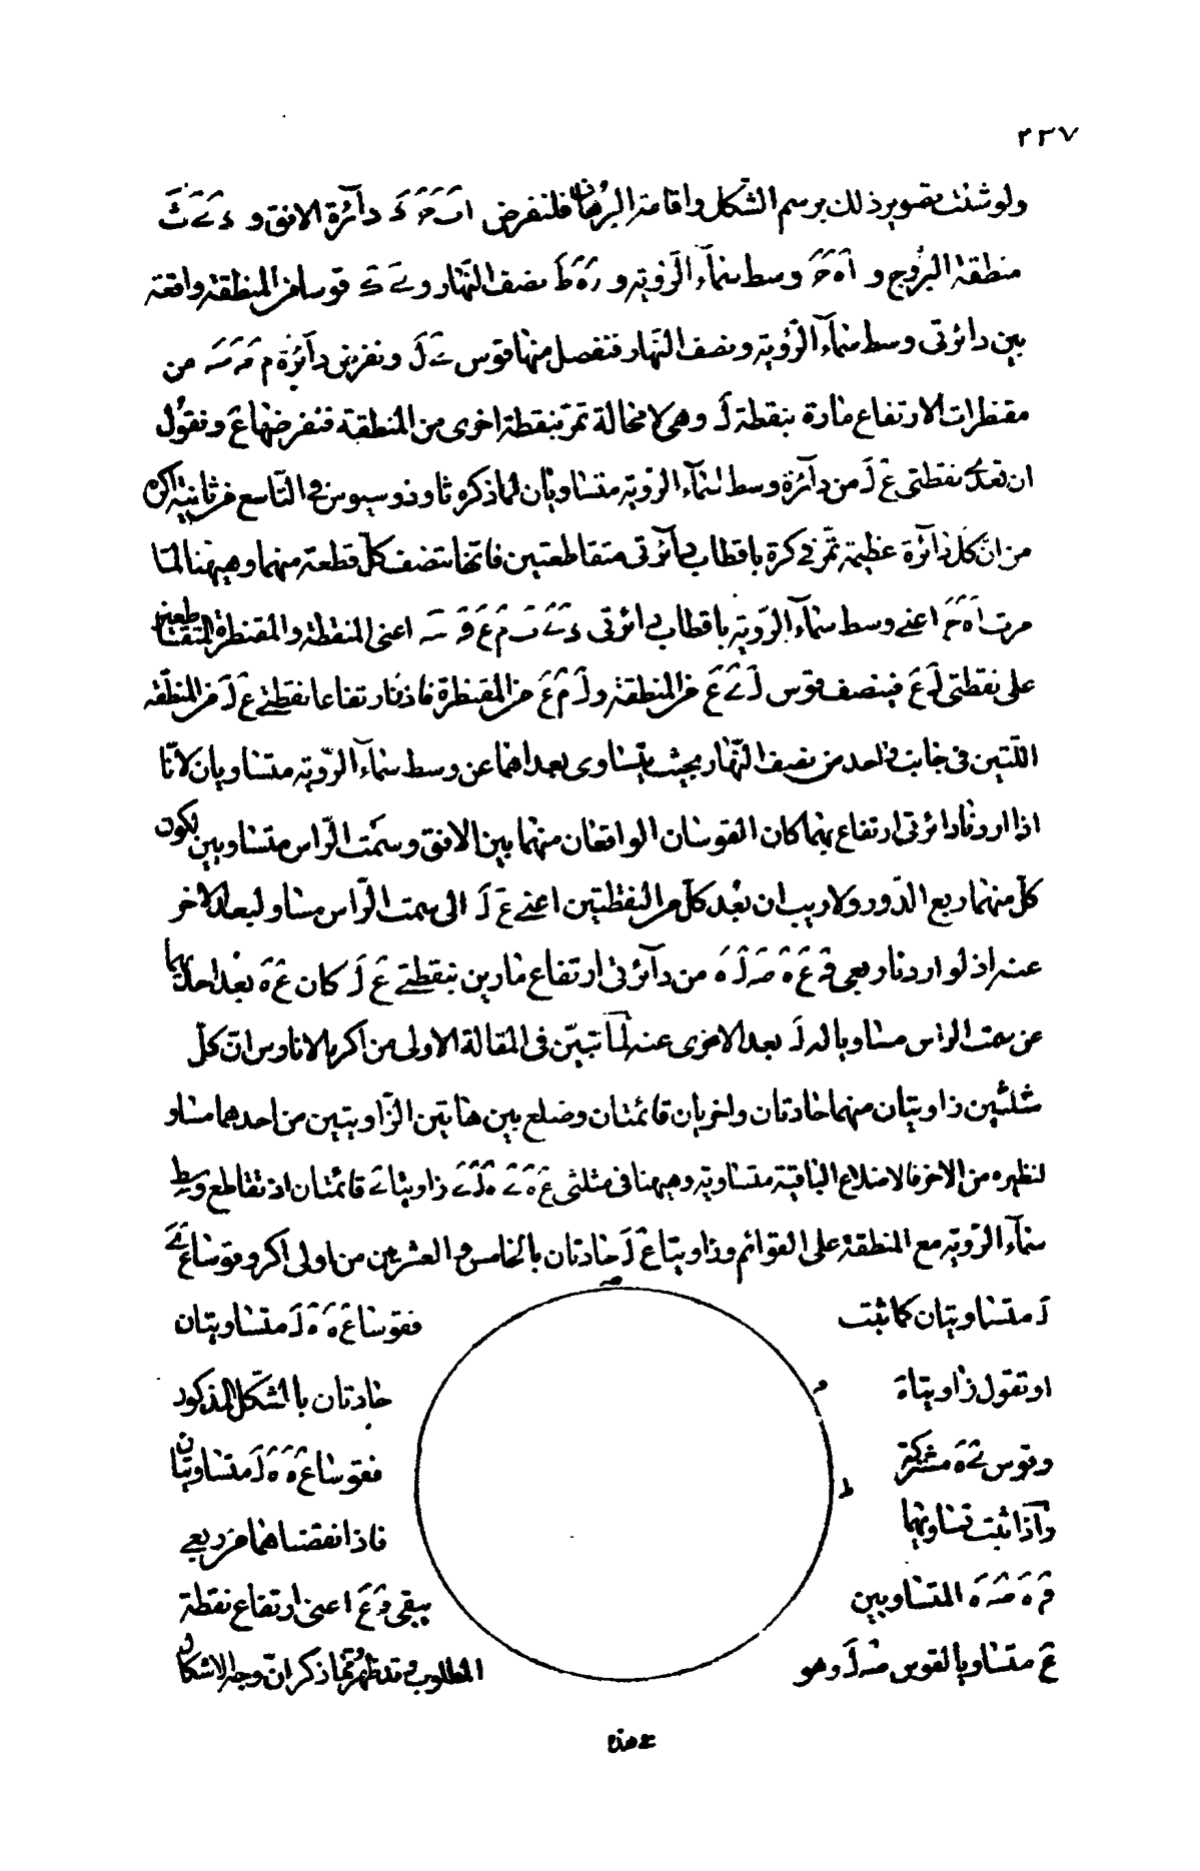 ٢٣٧
ولو شئت تصوير ذلك برسم الشكل واقامة البرهان فلنفرض ا ب ح د دآئرة الافق و
منطقة البروج و ا ه ح وسط سمآء الرؤية و ز ه ط نصف النهار و قوسا من المنطقة واقعة
بين دائرتى وسط سمآء الرؤية ونصف النهار فنفصل منها قوس ى ل ونفرض دآئرة م من
مقنطرات الارتفاع مارة بنقطة ل وهى لا محالة تمر بنقطة اخرى من المنطقة فنفرضها ع ونقول
ان بعدى نقطتى ع ل من دآئرة وسط سمآء الرؤية متساويان لما ذكره ثاوذوسيوس فى التاسع من ثانية اكره
من ان كل دآئرة عظيمة تمر فى كرة باقطاب دآئرتى متقاطعتين فانها تنصف كل قطعة منهما وهيهنا لما
مرت ا ه ح اعنى وسط سمآء الرؤية باقطاب دائرتى اعنى المنطقة والمقنطرة المتقاطعتين
على نقطتى ل ع فينصف قوس ل ى ع من المنطقة و ل م ع من المقنطرة فاذن ارتفاعا نقطتى ع ل من المنطقة
اللتين فى جانب واحد من نصف النهار بحيث يتساوى بعداهما عن وسط سمآء الرؤية متساويان لانا
اذا اردنا دائرتى ارتفاع بهما كان القوسان الواقعان منهما بين الافق وسمت الراس متساويين لكون
كل منهما ربع الدور ولا ريب ان بعد كل من النقطتين اعنى ع ل الى سمت الراس مساو لبعد الاخر
عنه اذ لو اردنا ربعى ق ع ه ص ل ه من دآئرتى ارتفاع مارين بنقطتى ع ل كان ع ه بعد احدهما
عن سمت الراس مساويا له ل بعد الاخرى عنه لما تبين فى المقالة الاولى من اكر مالاناوس ان كل
مثلثين زاويتان منهما حادتان واخريان قائمتان وضلع بين هاتين الزاويتين من احدهما مساو
لنظيره من الاخر فالاضلاع الباقية متساوية وهيهنا فى مثلثى ع ه ى ه ل ى زاويتا ى قائمتان اذ تقاطع وسط
سمآء الرؤية مع المنطقة على القوائم وزاويتا ع ل حادتان بالخامس والعشرين من اولى اكر وقوسا ع ى
ل متساويتان كما ثبت
فقوسا ع ه ه ل متساويتان
او تقول زاويتا ه
حادتان بالشكل المذكور
وقوس ى ه مشتركة
فقوسا ع ه ه ل متساويتان
واذا ثبت تساويهما
فاذا نقصناهما من ربعى
ق ه ص ه المتساويين
يبقى ق ع اعنى ارتفاع نقطة
ع متساويا لقوس ص ل وهو
المطلوب وقد ظهر مما ذكر ان وجه الاشكال
م
ط